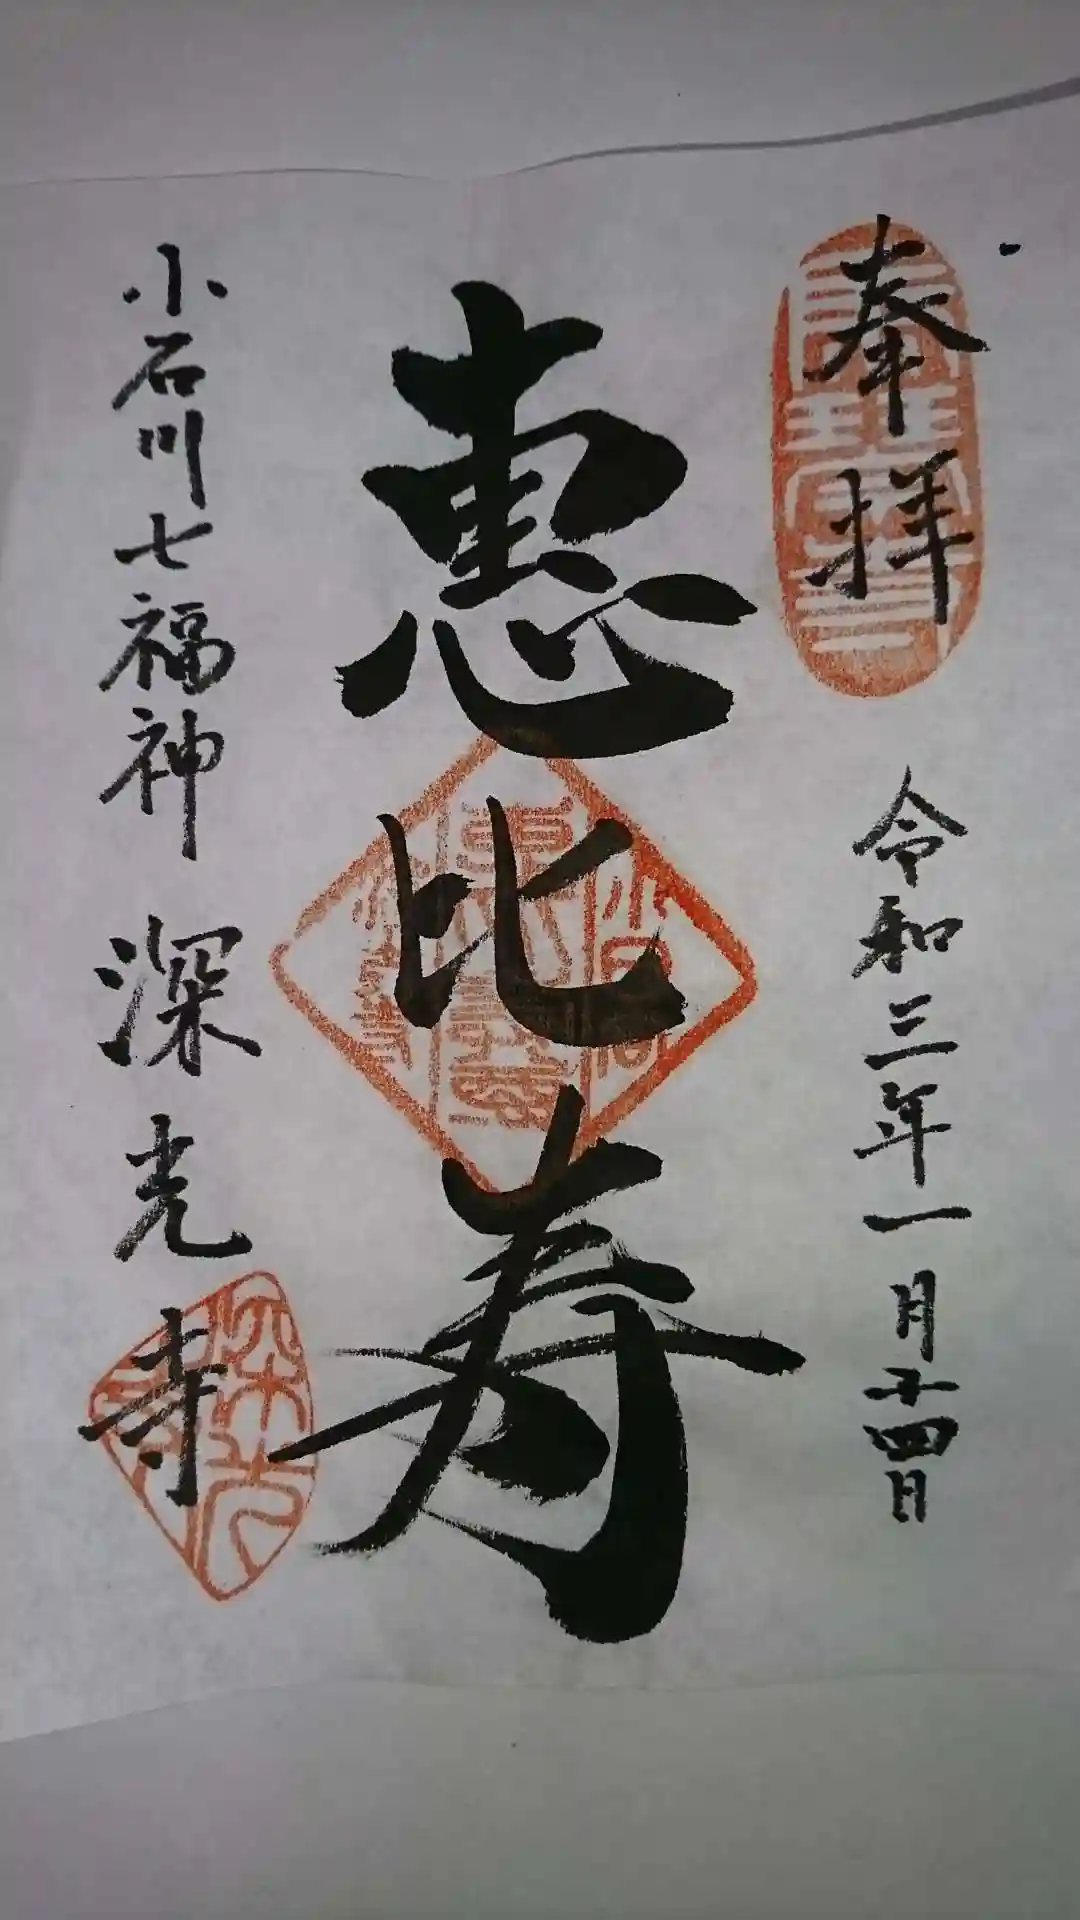 奉拝
令和三年一月二十四日
恵比寿
小石川七福神 深光寺